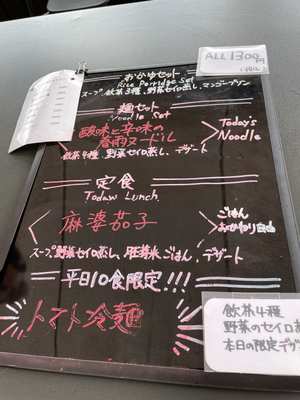 ALL 1300円
おかゆセット
Rice Porridge Set
スープ、飲茶3種、野菜セイロ蒸し、マンゴープリン
麺セット
Noodle Set
酸味と辛味の
春雨ヌードル
Today's
Noodle
飲茶4種、野菜セイロ蒸し、デザート
定食
Today Lunch
麻婆茄子
ごはん
おかわり自由
スープ、野菜セイロ蒸し、胚芽米ごはん、デザート
平日10食限定!!!
トマト冷麺
飲茶4種
野菜のセイロ蒸
本日の限定デザ